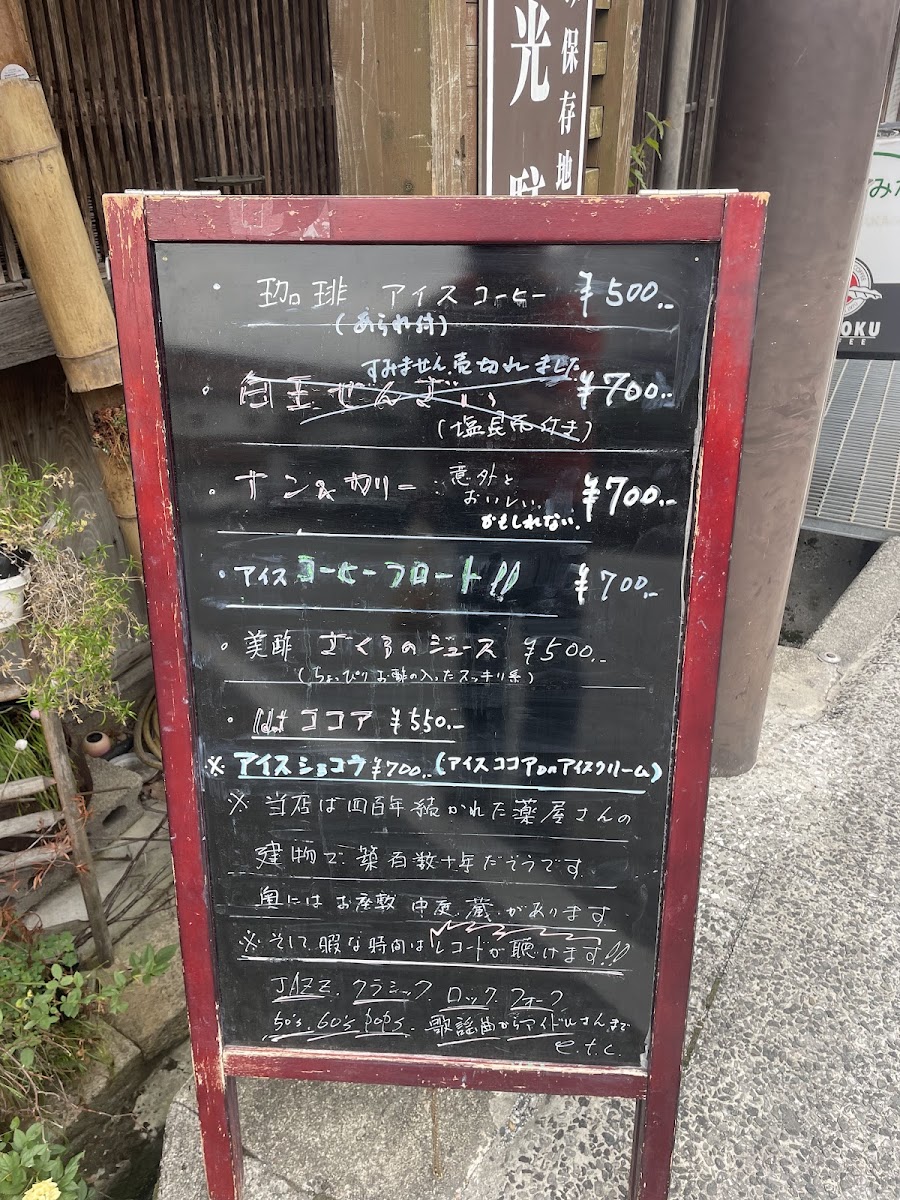 保存地
光
みか
OKU
・珈琲 アイスコーヒー ¥500.-
(あられ付)
すみません.売切れました
・白玉ぜんざい ¥700.-
(塩昆布付き)
・ナン&カリー 意外と
おいしい.
かもしれない. ¥700.-
・アイスコーヒーフロート!! ¥700.-
・美酢 ざくろのジュース ¥500.-
(ちょっぴりお酢の入ったスッキリ系)
・Hot ココア ¥550.-
※アイスショコラ¥700..(アイスココアonアイスクリーム)
※当店は四百年続かれた薬屋さんの
建物で、築百数十年だそうです.
奥には お座敷 中庭.蔵.があります
※そして.暇な時間はレコードが聴けます!!
JAZZ. クラシック. ロック. フォーク
50's. 60's pops. 歌謡曲からアイドルさんまで
e.t.c.